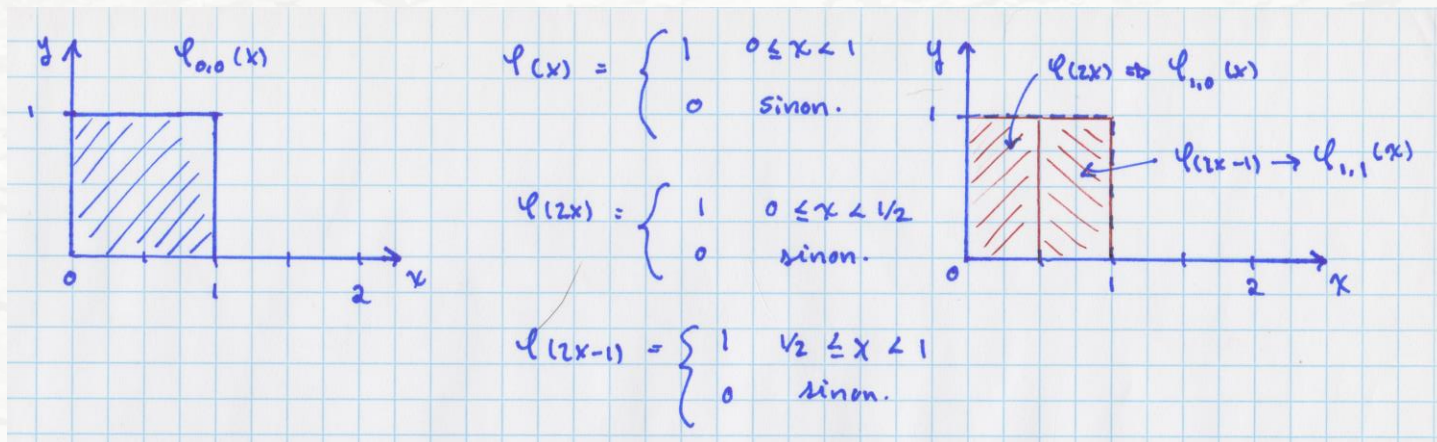 y
φ₀,₀(x)
1
0
1
2
x
φ(x) = { 1 0 ≤ x < 1
0 sinon.
φ(2x) = { 1 0 ≤ x < 1/2
0 sinon.
φ(2x-1) = { 1 1/2 ≤ x < 1
0 sinon.
y
φ(2x) ⇒ φ₁,₀(x)
1
φ(2x-1) → φ₁,₁(x)
0
1
2
x